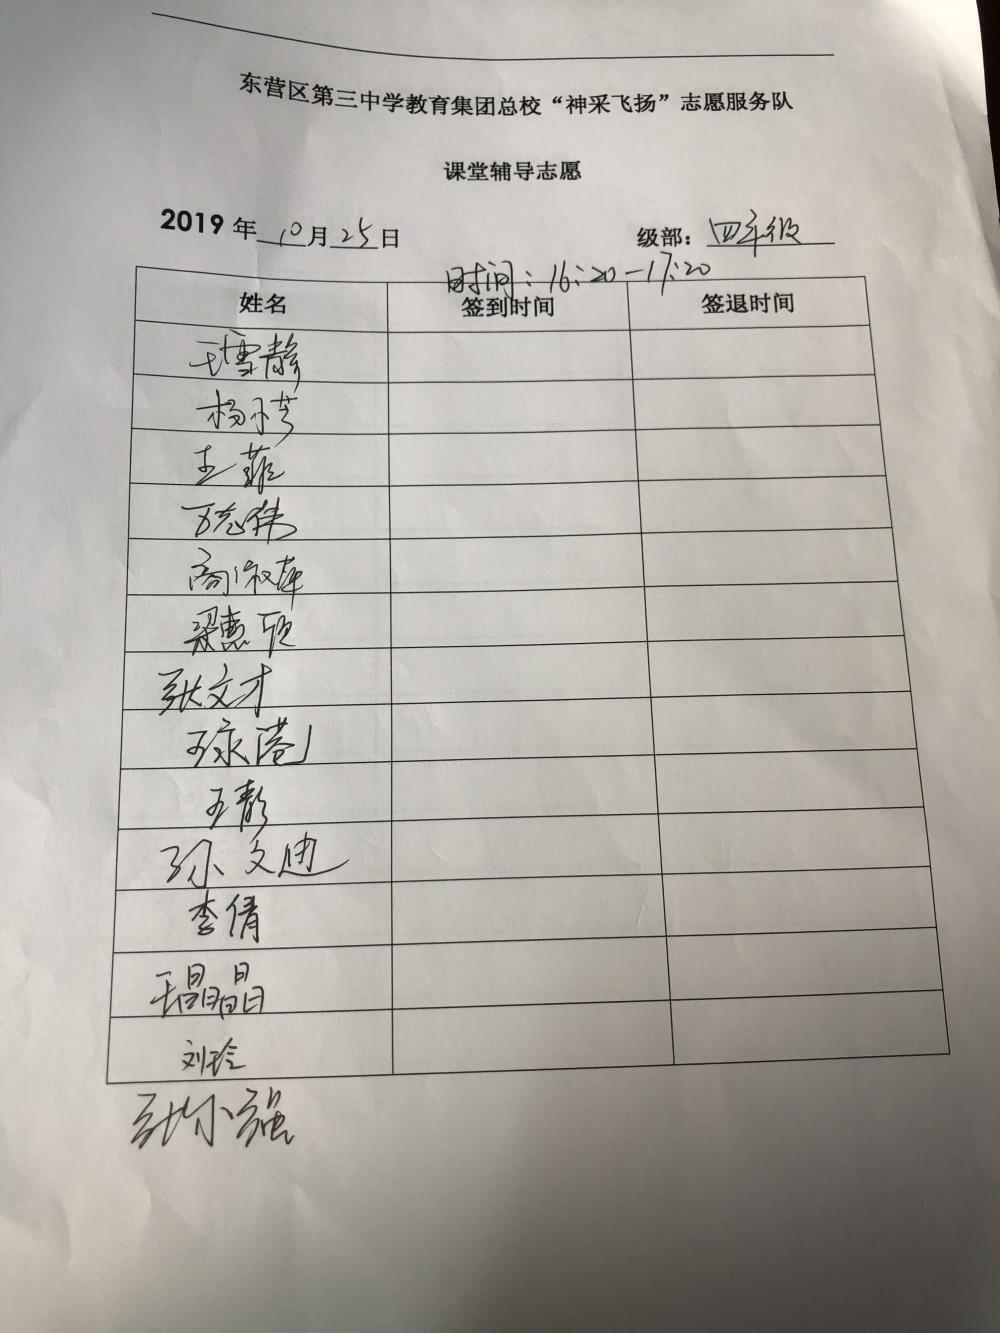 东营区第三中学教育集团总校“神采飞扬”志愿服务队
课堂辅导志愿
2019年 10月25日 级部：四年级
时间：16:20-17:20
姓名 签到时间 签退时间
王雪静
杨小芳
王菲
商淑萍
梁惠颀
张文才
王静
孙文迪
李倩
王晶晶
刘玲
张小强